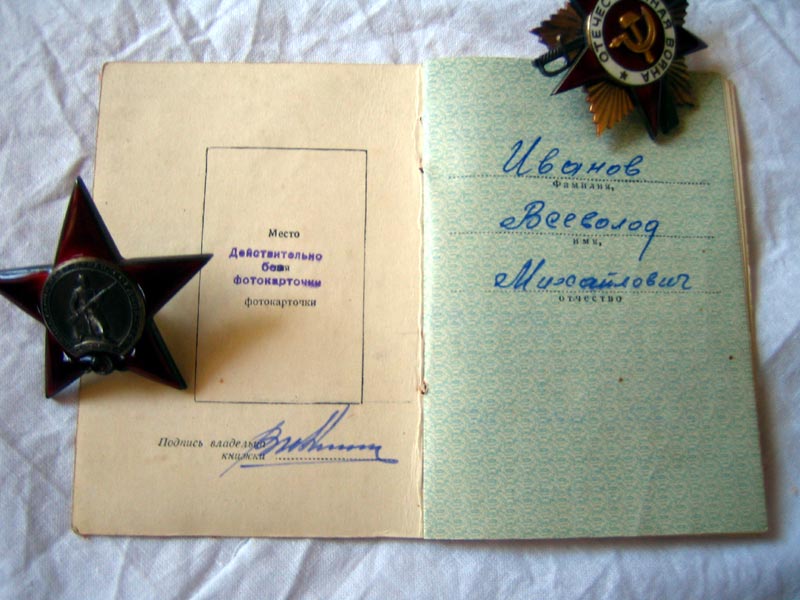 ОТЕЧЕСТВЕННАЯ ВОЙНА
Место
Действительно
без
фотокарточки
фотокарточки
Подпись владельца
книжки
Иванов
фамилия,
Всеволод
имя,
Михайлович
отчество